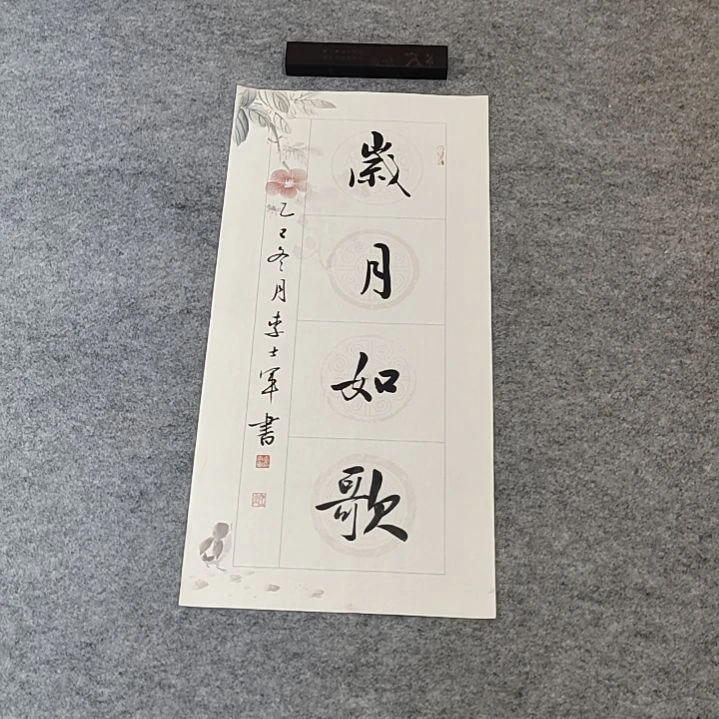 歲月如歌
乙巳冬月李士軍書